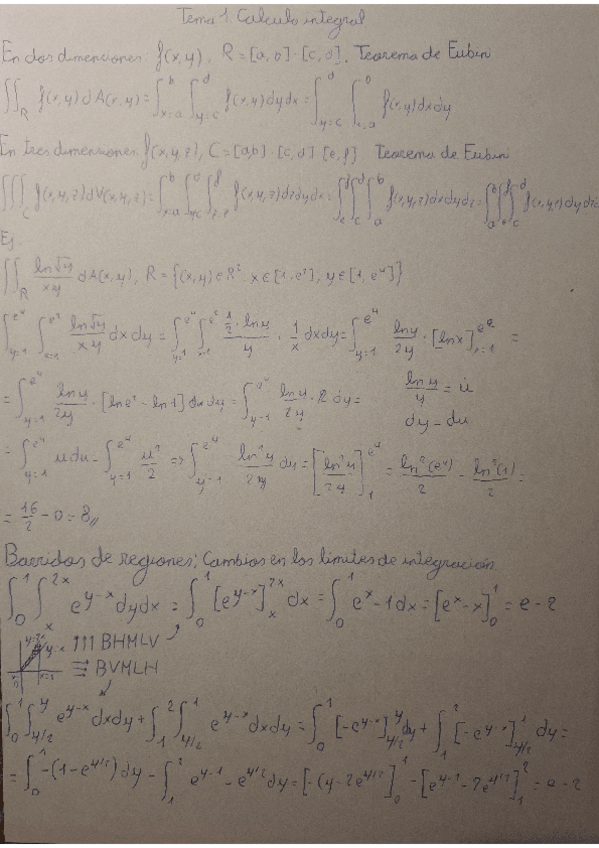 Tema 1. Calculo integral
En dos dimensiones: f(x,y), R = [a,b]·[c,d]. Teorema de Fubini
∬_R f(x,y)dA(x,y) = ∫_{x=a}^{b} ∫_{y=c}^{d} f(x,y)dydx = ∫_{y=c}^{d} ∫_{x=a}^{b} f(x,y)dxdy
En tres dimensiones f(x,y,z), C = [a,b]·[c,d]·[e,f] Teorema de Fubini
∭_C f(x,y,z)dV(x,y,z) = ∫_{x=a}^{b} ∫_{y=c}^{d} ∫_{z=e}^{f} f(x,y,z)dzdydx = ∫_e^f ∫_c^d ∫_a^b f(x,y,z)dxdydz = ∫_a^b ∫_e^f ∫_c^d f(x,y,z)dydzdx
Ej.
∬_R ln√y/xy dA(x,y), R = {(x,y)∈R². x∈[1,e²], y∈[1,e⁴]}
∫_{y=1}^{e⁴} ∫_{x=1}^{e²} ln√y/xy dxdy = ∫_{y=1}^{e⁴} ∫_{x=1}^{e²} (1/2·lny)/y · 1/x dxdy = ∫_{y=1}^{e⁴} lny/2y · [lnx]_{x=1}^{e²} =
= ∫_{y=1}^{e⁴} lny/2y · [lne² - ln1] dxdy = ∫_{y=1}^{e⁴} lny/2y · 2 dy = lny/y = u
dy = du
= ∫_{y=1}^{e⁴} u du = ∫_{y=1}^{e⁴} u²/2 => ∫_{y=1}^{e⁴} ln²y/2y dy = [ln²y/2y]_1^{e⁴} = ln²(e⁴)/2 - ln²(1)/2 =
= 16/2 - 0 = 8//
Barridos de regiones; Cambios en los limites de integración
∫_0^1 ∫_x^{2x} e^{y-x} dydx = ∫_0^1 [e^{y-x}]_x^{2x} dx = ∫_0^1 e^x - 1dx = [e^x - x]_0^1 = e - 2
y=2x y=x ↑↑↑ BHMLV
x=1 ⇉ BVMLH
∫_0^1 ∫_{y/2}^{y} e^{y-x} dxdy + ∫_1^2 ∫_{y/2}^1 e^{y-x} dxdy = ∫_0^1 [-e^{y-x}]_{y/2}^{y} dy + ∫_1^2 [-e^{y-x}]_{y/2}^1 dy =
= ∫_0^1 -(1-e^{y/2})dy - ∫_1^2 e^{y-1} - e^{y/2} dy = [-(y-2e^{y/2})]_0^1 - [e^{y-1} - 2e^{y/2}]_1^2 = e - 2